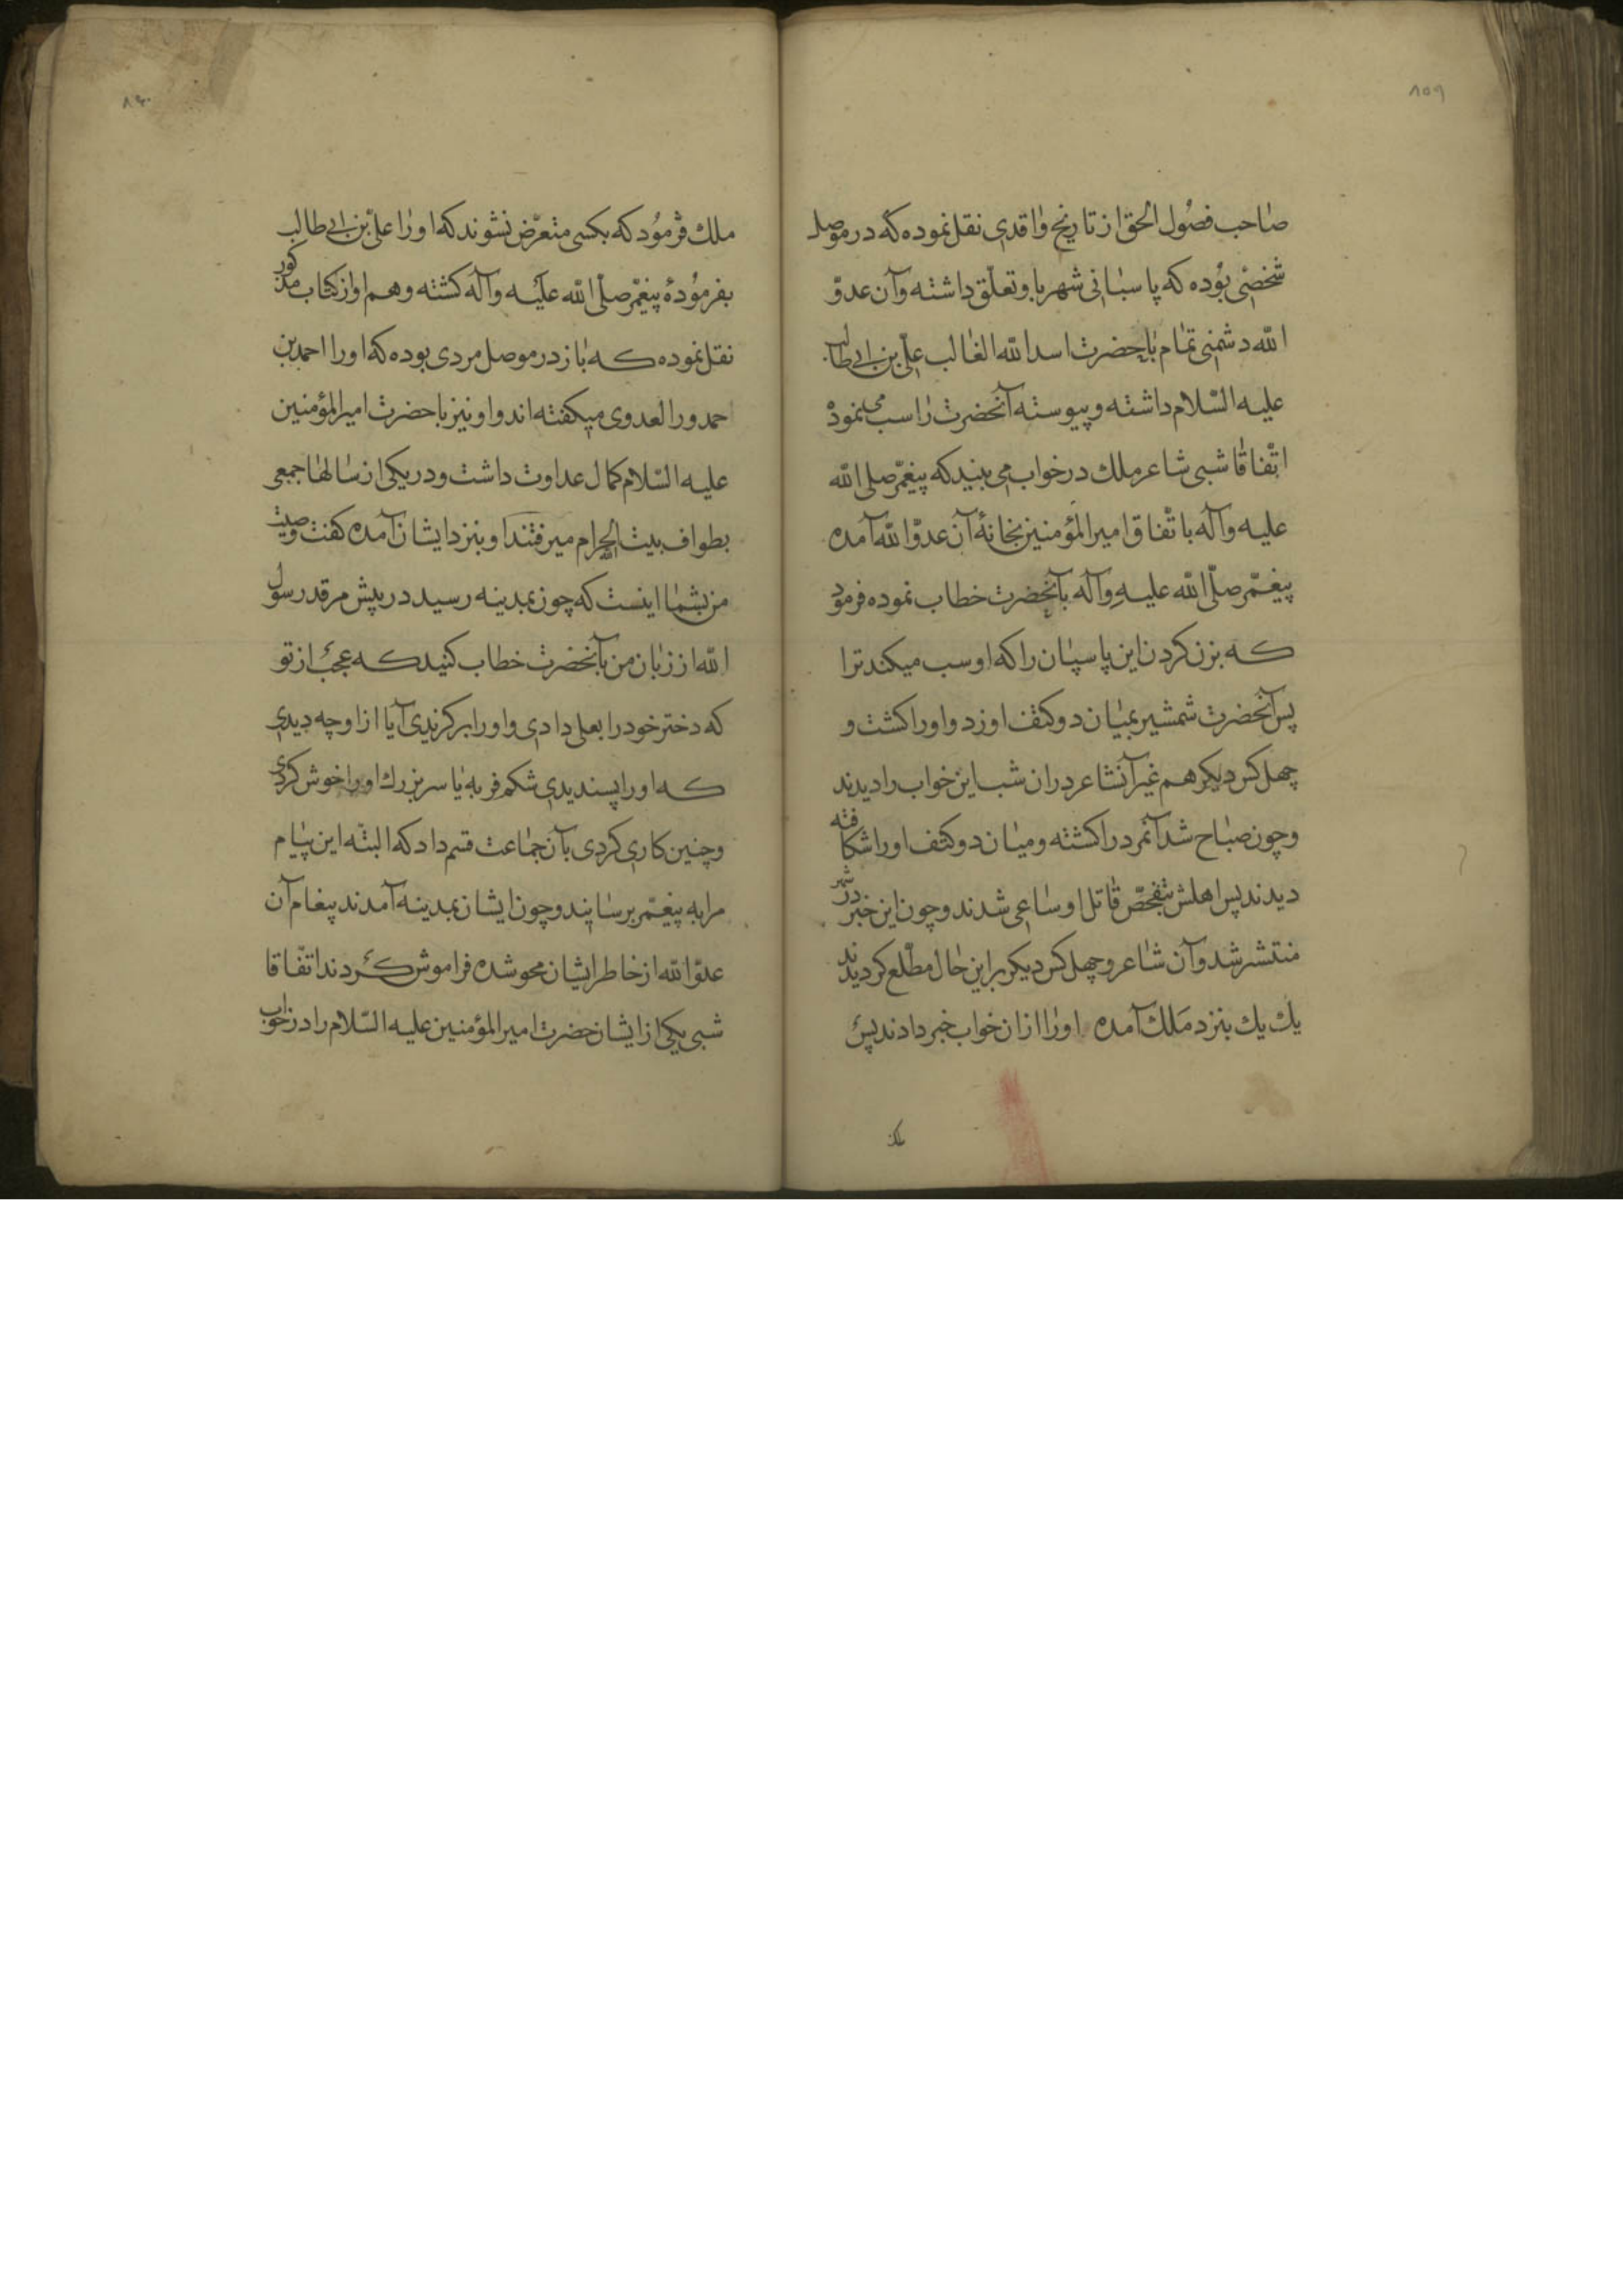 ۸۵۹
صاحب فصول الحق از تاریخ واقدی نقل نموده که در موصل
شخصی بوده که پاسبانی شهر باو تعلّق داشته وآن عدوّ
اللّه دشمنی تمام با حضرت اسد اللّه الغالب علیّ بن ابی طالب
علیه السّلام داشته و پیوسته آنحضرت را سب می نمود
اتّفاقا شبی شاعر ملک در خواب می بیند که پیغمّبر صلی اللّه
علیه وآله باتّفاق امیرالمؤمنین بخانهٔ آن عدوّ اللّه آمده
پیغمّبر صلّی اللّه علیه وآله بآنحضرت خطاب نموده فرمود
که بزن کردن این پاسبان را که او سب میکند ترا
پس آنحضرت شمشیر بمیان دو کتف او زد و او را کشت و
چهل کس دیکر هم غیر آنشاعر دران شب این خواب را دیدند
وچون صباح شد آنمرد را کشته و میان دو کتف او را شکافته
دیدند پس اهلش بتفحّص قاتل او ساعی شدند و چون این خبر در شهر
منتشر شد وآن شاعر و چهل کس دیکر براین حال مطّلع کردیدند
یك یك بنزد مَلك آمده او را ازان خواب خبر دادند پس
ملك
۸۶۰
ملك فرمود که بکسی متعرّض نشوند که او را علیّ بن ابی طالب
بفرمودهٔ پیغمّبر صلّی اللّه علیه وآله کشته و هم او از کتاب مذکور
نقل نموده که باز در موصل مردی بوده که او را احمد بن
حمدور العدوی میکفته اند و او نیز با حضرت امیرالمؤمنین
علیه السّلام کمال عداوت داشت و در یکی از سالها جمعی
بطواف بیت الحرام میرفتند او بنزد ایشان آمده کفت وصیت
من بشما اینست که چون بمدینه رسید در پیش مرقد رسول
اللّه از زبان من بآنحضرت خطاب کنید که عجب از تو
که دختر خود را بعلی دادی و او را برکزیدی آیا از او چه دیدی
که او را پسندیدی شکم فربه یا سر بزرك او را خوش کردی
وچنین کاری کردی بآن جماعت قسم داد که البتّه این پیام
مرا به پیغمّبر برسانید و چون ایشان بمدینه آمدند پیغام آن
عدوّ اللّه از خاطر ایشان محو شده فراموش کردند اتّفاقا
شبی یکی از ایشان حضرت امیرالمؤمنین علیه السّلام را در خواب